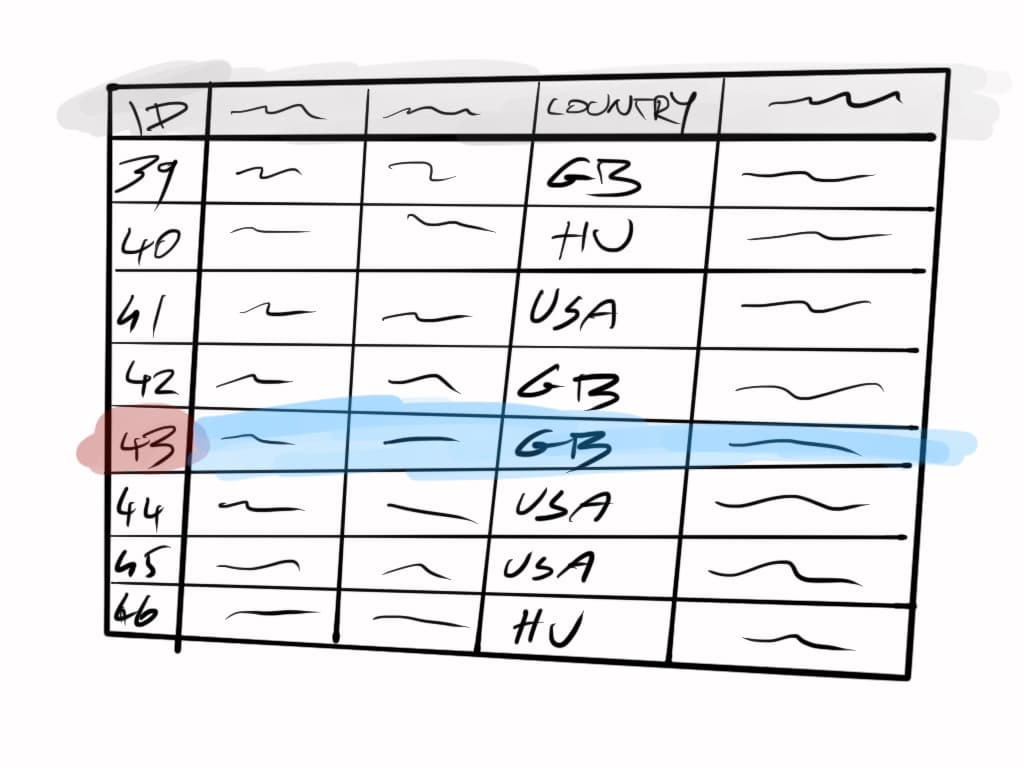 ID COUNTRY
39 GB
40 HU
41 USA
42 GB
43 GB
44 USA
45 USA
46 HU